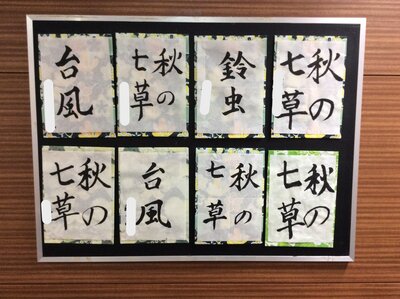 台風
秋の
七草
鈴虫
秋の
七草
秋の
七草
台風
秋の
七草
秋の
七草